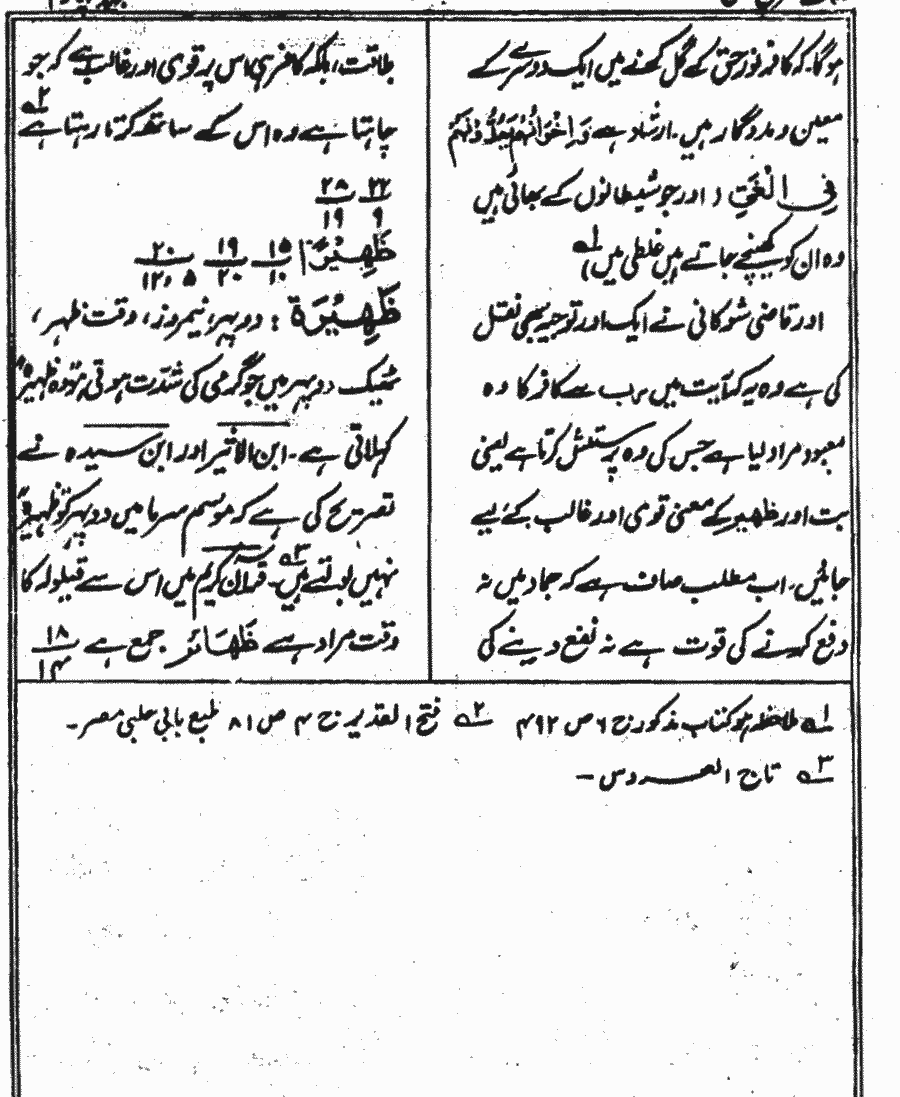 ہوگا۔ کہ کافر نور حق کے گل کرنے میں ایک دوسرے کے
معین و مددگار ہیں۔ ارشاد ہے وَاِخْوَانُهُمْ يَمُدُّوْنَهُمْ
فِی الْغَیِّ ( اور جو شیطانوں کے بھائی ہیں
وہ ان کو کھینچے جاتے ہیں غلطی میں) لہ
اور قاضی شوکانی نے ایک اور توجیہ بھی نقل
کی ہے وہ یہ کہ آیت میں رب سے کافر کا وہ
معبود مراد لیا ہے جس کی وہ پرستش کرتا ہے یعنی
بت اور ظہیر کے معنی قوی اور غالب کے لیے
جائیں۔ اب مطلب صاف ہے کہ جماد میں نہ
دفع کرنے کی قوت ہے نہ نفع دینے کی
طاقت، بلکہ کافر ہی اس پر قوی اور غالب ہے کہ جو
چاہتا ہے وہ اس کے ساتھ کرتا رہتا ہے ۲ہ
۲۲ ۲۸
۹ ۱۹
ظَهِیْرًا ۱۵ ۱۹ ۲۰
۱۰ ۲۰ ۵ ،۱۲
ظَهِیْرَة : دوپہر، نیمروز، وقت ظہر ،
ٹھیک دوپہر میں جو گرمی کی شدت ہوتی ہے وہ ظہیرہ
کہلاتی ہے۔ ابن الاثیر اور ابن سیدہ نے
تصریح کی ہے کہ موسم سرما میں دوپہر کو ظہیرہ
نہیں بولتے ہیں ۳ہ۔ قرآن کریم میں اس سے قیلولہ کا
وقت مراد ہے ظَهَائر جمع ہے ۱۸
۱۴
۱ہ ملاحظہ ہو کتاب مذکور ج ۶ ص ۴۹۲ ۲ہ فتح القدیر ج ۴ ص ۸۱ طبع بابی حلبی مصر۔
۳ہ تاج العروس ۔